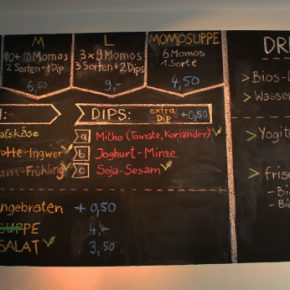 M L MOMOSUPPE
10+10 Momos 3x9 Momos 6 Momos
2 Sorten+1Dip 3 Sorten+2Dips 1 Sorte
6,50 9,- 4,50
DIPS: extra Dip +0,50
a Mitho (Tomate, Koriander)
b Joghurt-Minze
c Soja-Sesam
otte-Ingwer
Frühling
ngebraten +0,50
SUPPE 4,-
SALAT 3,50
DR
> Bio-L
> Wasser
> Yogit
> frisc
- Bi
- Bi